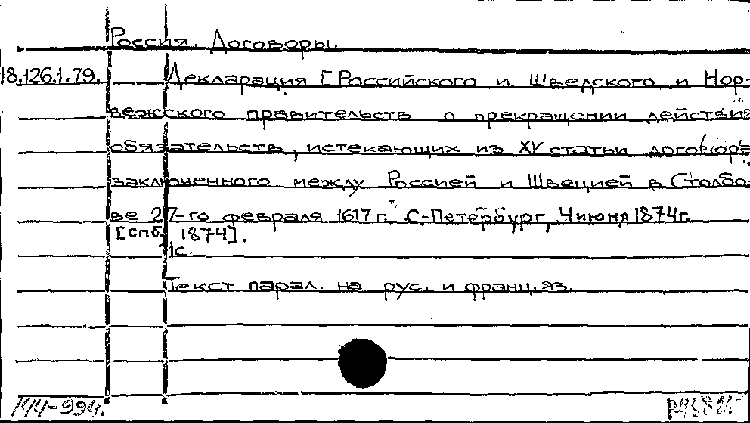 Россия. Договоры.
18.126.1.79. Декларация [Российского и Шведского и Нор-
вежского правительств о прекращении действия
обязательств, истекающих из XV статьи договора,
заключенного между Россией и Швецией в Столбо-
ве 27-го февраля 1617 г. С-Петербург, 4 июня 1874 г.
[спб. 1874].
1с.
Текст парал. на рус. и франц. яз.
144-994.